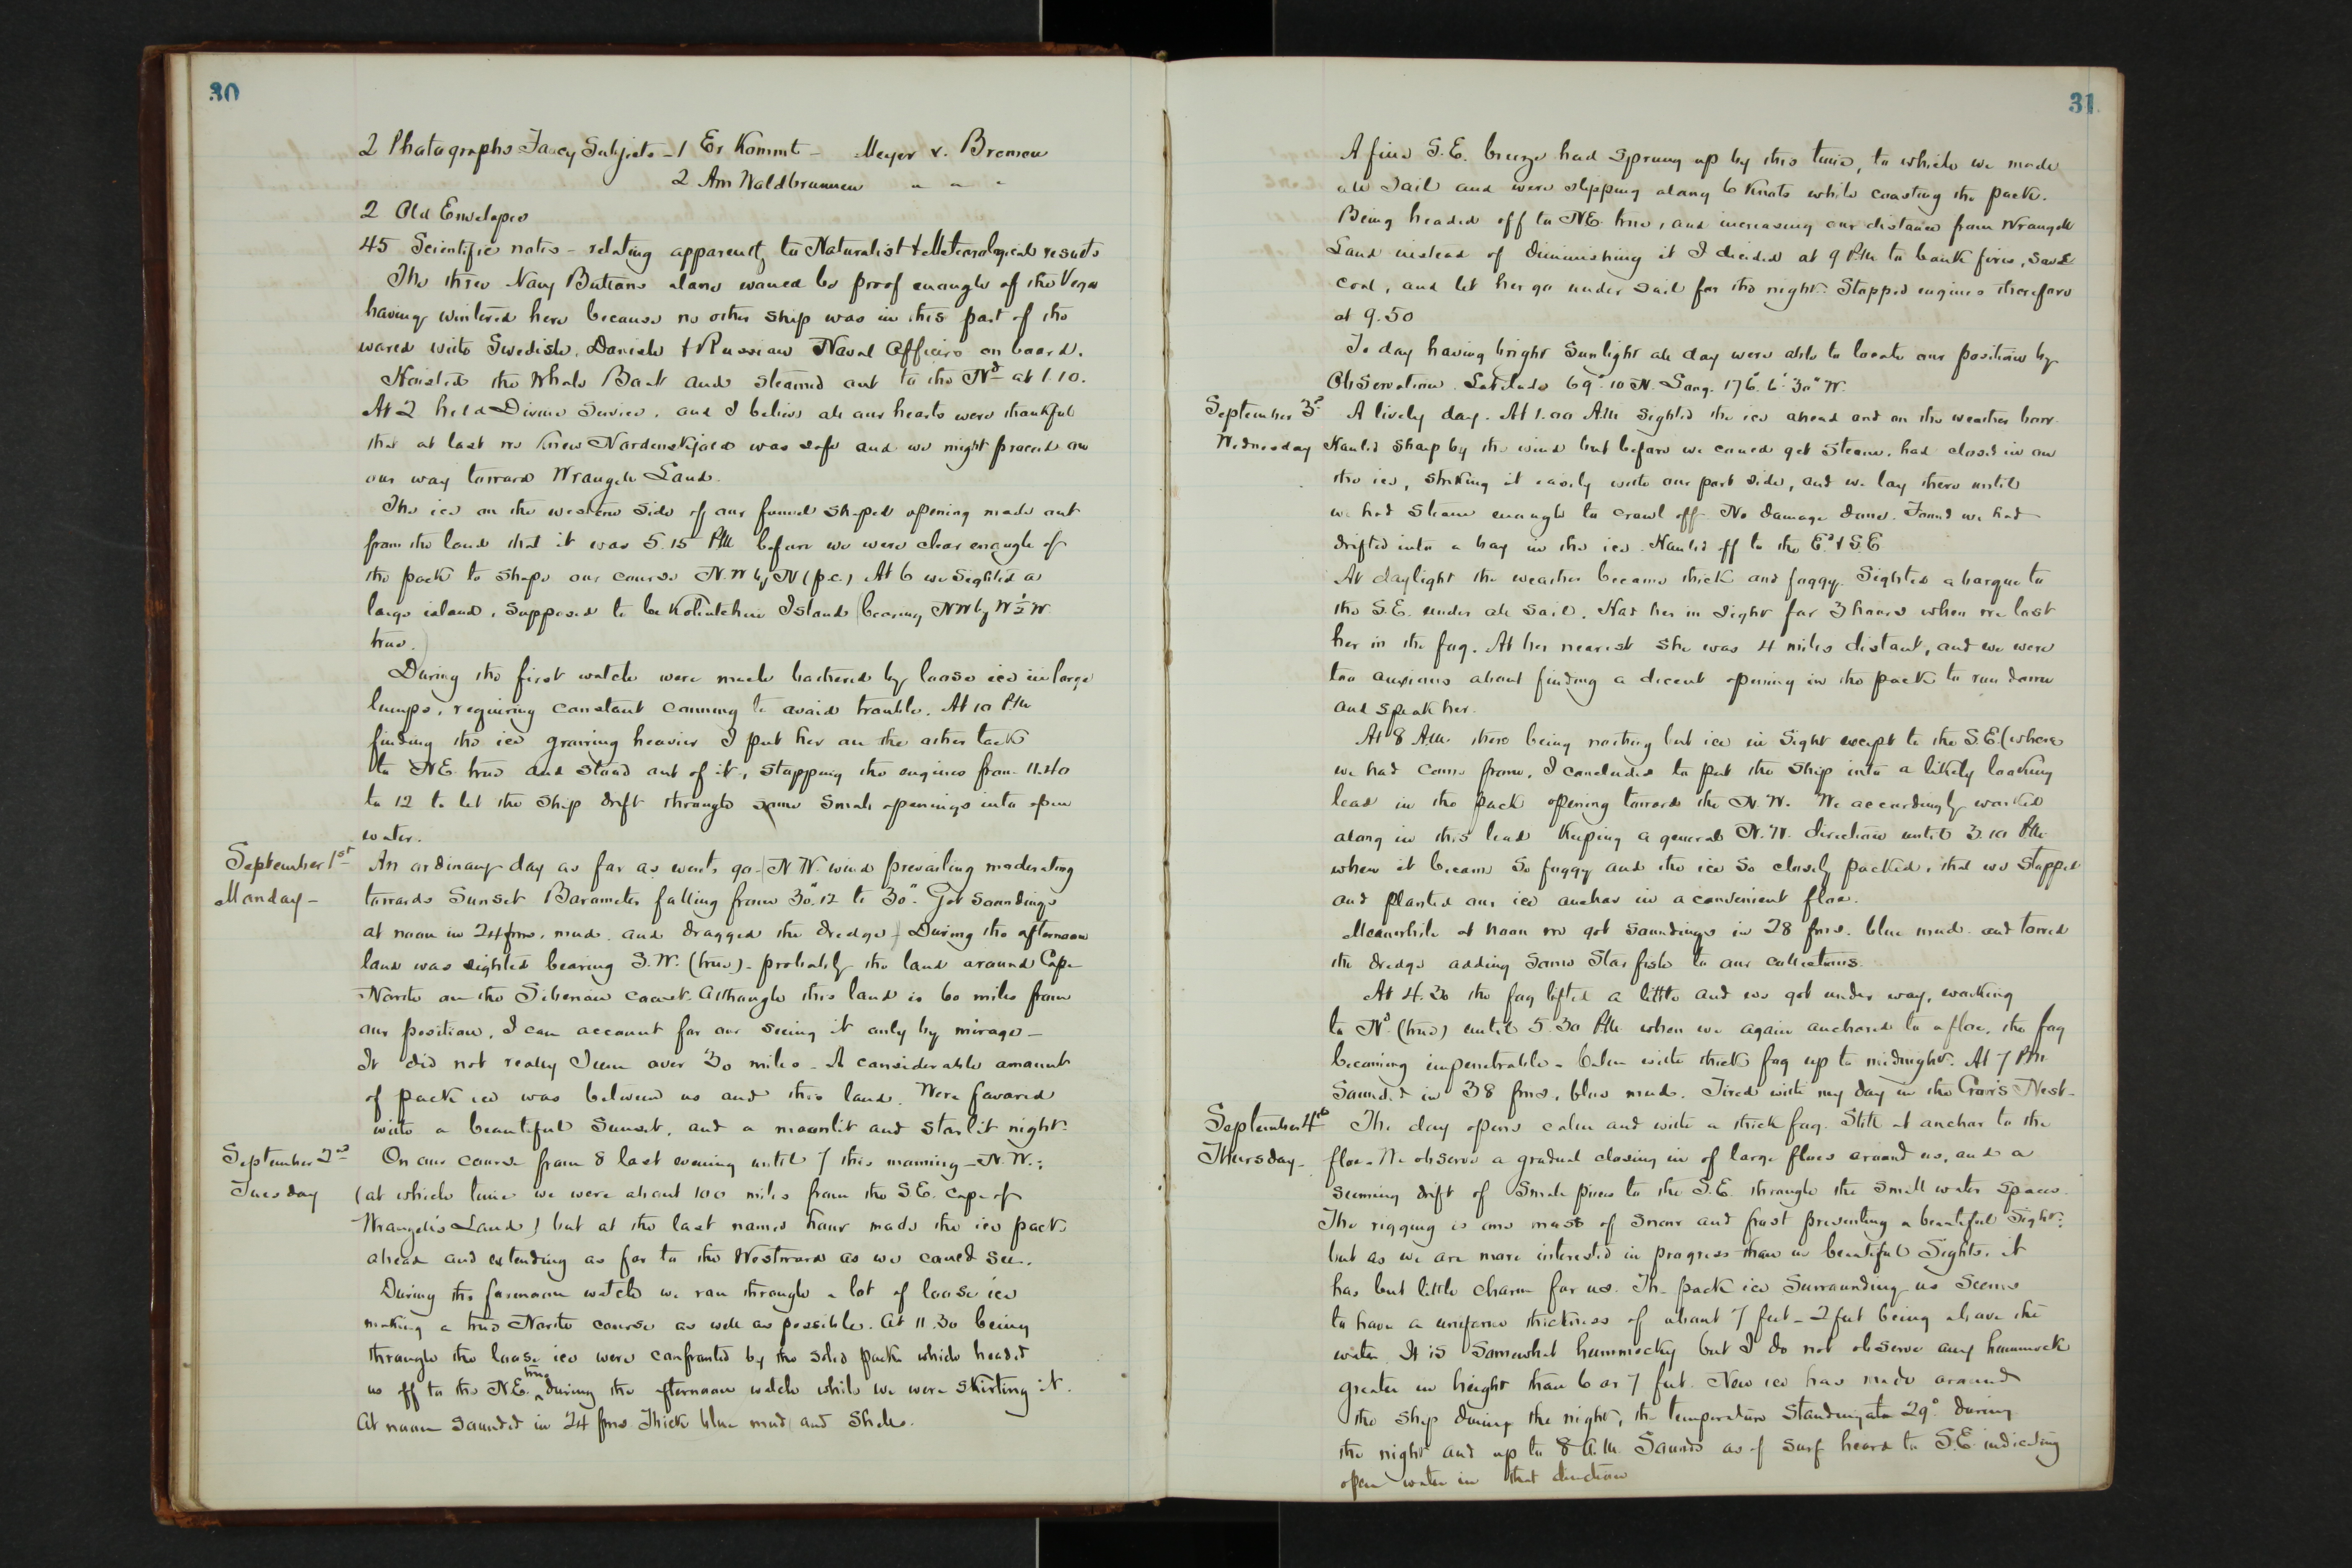 30
2 Photographs Fancy Subjects - 1 Er Kommt - Meyer v. Bremen
2 Am Waldbrunnen " " "
2 Old Envelopes
45 Scientific notes - relating apparently to Naturalist & Meteorological results
The three Navy Buttons alone would be proof enough of the Vega
having wintered here because no other ship was in this part of the
world with Swedish, Danish & Russian Naval Officers on board.
Hoisted the Whale Boat and steamed out to the Nd at 1.10.
At 2 held Divine Service, and I believe all our hearts were thankful
that at last we knew Nordenskjold was safe and we might proceed on
our way toward Wrangell Land.
The ice on the western side of our funnel shaped opening made out
from the land that it was 5.15 P.M. before we were clear enough of
the pack to shape our course N.W by N (p.c.) At 6 we sighted a
large island, supposed to be Koliutchin Island (bearing NW by W ½ W.
true.)
During the first watch were much bothered by loose ice in large
lumps, requiring constant conning to avoid trouble. At 10 P.M.
finding the ice growing heavier I put her on the other tack
to N.E. true and stood out of it, stopping the engines from 11.40
to 12 to let the ship drift through some small openings into open
water.
September 1st An ordinary day as far as events go - (N.W. wind prevailing moderating
Monday - towards Sunset Barometer falling from 30".12 to 30". Got soundings
at noon in 24 fms. mud. and dragged the dredge) During the afternoon
land was sighted bearing S.W. (true) - probably the land around Cape
North on the Siberian coast. Although this land is 60 miles from
our position, I can account for our seeing it only by mirage -
It did not really seem over 30 miles - A considerable amount
of pack ice was between us and this land. Were favored
with a beautiful Sunset, and a moonlit and starlit night.
September 2nd On our course from 8 last evening until 7 this morning - N.W.;
Tuesday (at which time we were about 100 miles from the S.E. cape of
Wrangell's Land) but at the last named hour made the ice pack
ahead and extending as far to the Westward as we could see.
During the forenoon watch we ran through a lot of loose ice
making a true North course as well as possible. At 11.30 being
through the loose ice were confronted by the solid pack which headed
true
us off to the N.E. ^ during the afternoon watch while we were skirting it.
At noon sounded in 24 fms. Thick blue mud and Shells.
31
A fine S.E. breeze had sprung up by this time, to which we made
all Sail and were slipping along 6 Knots while coasting the pack.
Being headed off to NE true, and increasing our distance from Wrangell
Land instead of diminishing it I decided at 9 P.M. to bank fires, save
coal, and let her go under sail for the night. Stopped engines therefore
at 9.50
To day having bright Sunlight all day were able to locate our position by
Observation. Latitude 69°.10 N. Long. 176°.6'.30" W.
September 3d A lively day. At 1.00 A.M. sighted the ice ahead and on the weather bow.
Wednesday Hauled sharp by the wind but before we could get steam, had closed in on
the ice, striking it easily with our port side, and we lay there until
we had steam enough to crawl off. No damage done. Found we had
drifted into a bay in the ice. Hauled off to the Ed & S.E
At daylight the weather became thick and foggy. Sighted a barque to
the S.E. under all sail. Had her in sight for 3 hours when we lost
her in the fog. At her nearest she was 4 miles distant, and we were
too anxious about finding a decent opening in the pack to run down
and speak her.
At 8 A.M. there being nothing but ice in Sight except to the S.E. (where
we had come from, I concluded to put the ship into a likely looking
lead in the pack opening toward the N.W. We accordingly worked
along in this lead keeping a general N.W. direction until 3.10 P.M.
when it became so foggy and the ice so closely packed, that we stopped
and planted our ice anchor in a convenient floe.
Meanwhile at noon we got soundings in 28 fms. blue mud. and towed
the dredge adding some Star fish to our collections.
At 4.30 the fog lifted a little and we got under way, working
to Nd (true) until 5.30 P.M. when we again anchored to a floe, the fog
becoming impenetrable - Calm with thick fog up to midnight. At 7 P.M.
Sounded in 38 fms. blue mud. Tired with my day in the Crow's Nest -
September 4th The day opens calm and with a thick fog. Still at anchor to the
Thursday - floe - We observe a gradual closing in of large floes around us, and a
seeming drift of Small pieces to the S.E. through the small water spaces.
The rigging is one mass of snow and frost presenting a beautiful Sight;
but as we are more interested in progress than in beautiful Sights, it
has but little charm for us. The pack ice Surrounding us Seems
to have a uniform thickness of about 7 feet - 2 feet being above the
water. It is Somewhat hummocky but I do not observe any hummock
greater in height than 6 or 7 feet. New ice has made around
the ship during the night, the temperature Standing at 29° during
the night and up to 8 A.M. Sounds as of surf heard to S.E. indicating
open water in that direction